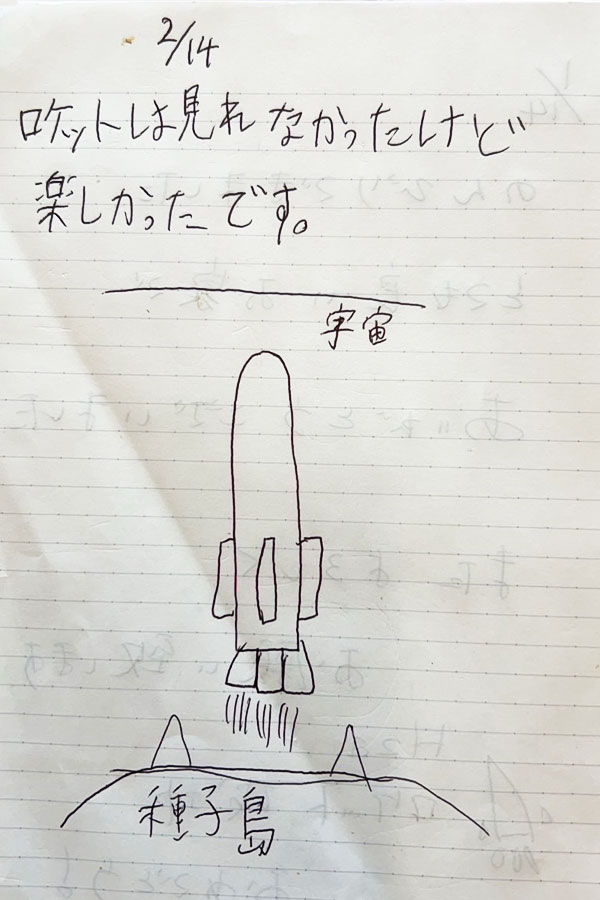 2/14
ロケットは見れなかったけど
楽しかったです。
宇宙
種子島